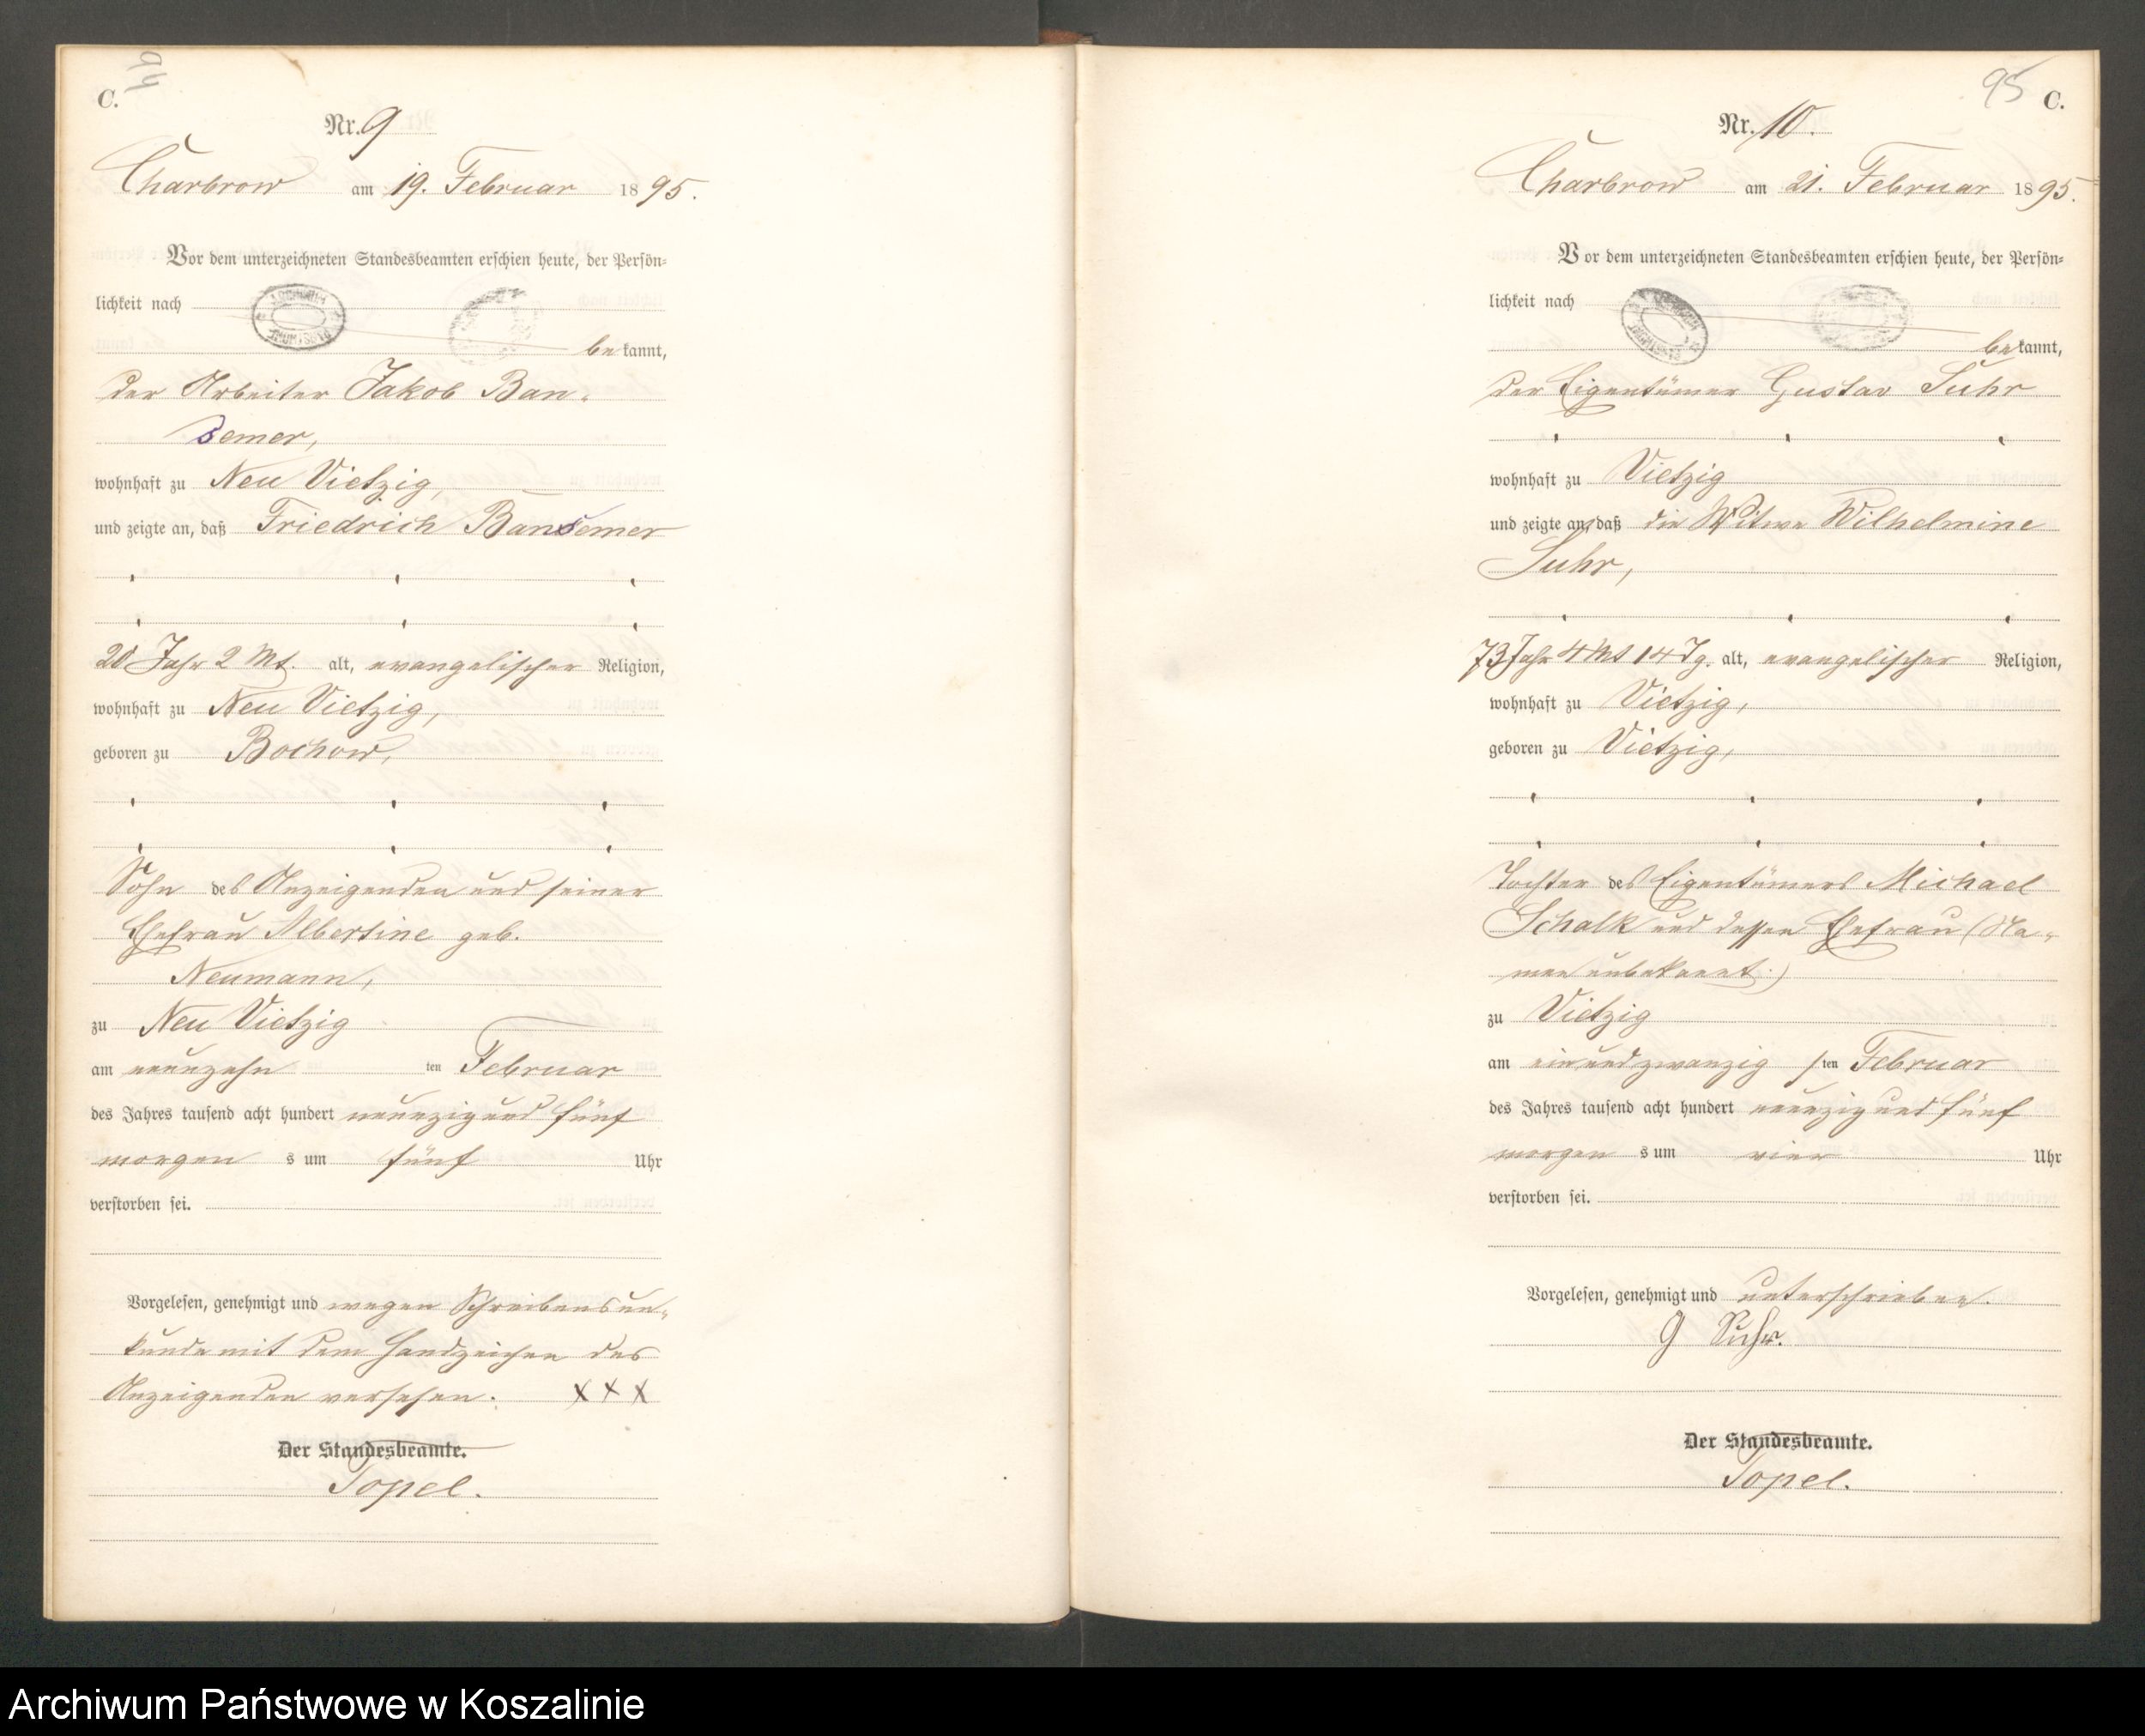 94
C.
Nr. 9
Charbrow am 19. Februar 1895.
Vor dem unterzeichneten Standesbeamten erschien heute, der Persön-
lichkeit nach
bekannt,
der Arbeiter Jakob Ban-
semer,
wohnhaft zu Neu Vietzig,
und zeigte an, daß Friedrich Bansemer
20 Jahr 2 Mt. alt, evangelischer Religion,
wohnhaft zu Neu Vietzig,
geboren zu Bochow,
Sohn des Anzeigenden und seiner
Ehefrau Albertine geb.
Neumann,
zu Neu Vietzig
am neunzehn ten Februar
des Jahres tausend acht hundert neunzig und fünf
morgens um fünf Uhr
verstorben sei.
Vorgelesen, genehmigt und wegen Schreibensun-
kunde mit dem Handzeichen des
Anzeigenden versehen. XXX
Der Standesbeamte.
Topel.
95 C.
Nr. 10.
Charbrow am 21. Februar 1895.
Vor dem unterzeichneten Standesbeamten erschien heute, der Persön-
lichkeit nach
bekannt,
der Eigentümer Gustav Suhr
wohnhaft zu Vietzig
und zeigte an, daß die Witwe Wilhelmine
Suhr,
73 Jahr 4 Mt 14 Tg. alt, evangelischer Religion,
wohnhaft zu Vietzig,
geboren zu Vietzig,
Tochter des Eigentümers Michael
Schalk und dessen Ehefrau (Na-
men unbekannt.)
zu Vietzig
am einundzwanzig sten Februar
des Jahres tausend acht hundert neunzig und fünf
morgens um vier Uhr
verstorben sei.
Vorgelesen, genehmigt und unterschrieben.
G Suhr.
Der Standesbeamte.
Topel.
Archiwum Państwowe w Koszalinie